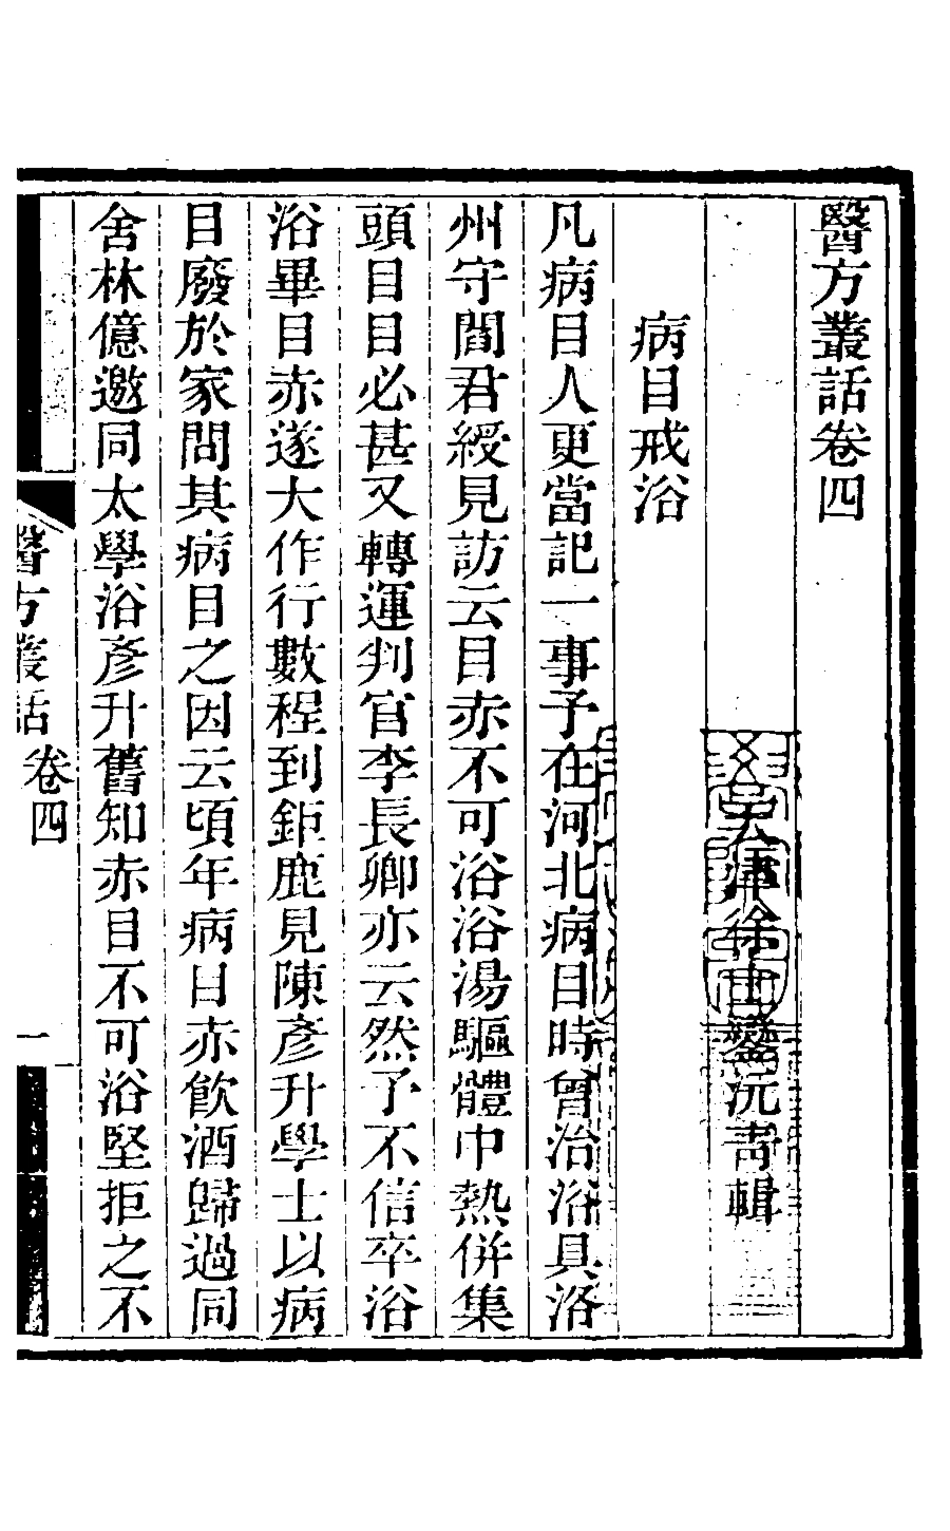 醫方叢話卷四
天津徐士鑾沅青輯
病目戒浴
凡病目人更當記一事予在河北病目時曾治浴具洛
州守閻君綬見訪云目赤不可浴浴湯驅體中熱併集
頭目目必甚又轉運判官李長卿亦云然予不信卒浴
浴畢目赤遂大作行數程到鉅鹿見陳彥升學士以病
目廢於家問其病目之因云頃年病目赤飲酒歸過同
舍林億邀同太學浴彥升舊知赤目不可浴堅拒之不
醫方叢話
卷四
一